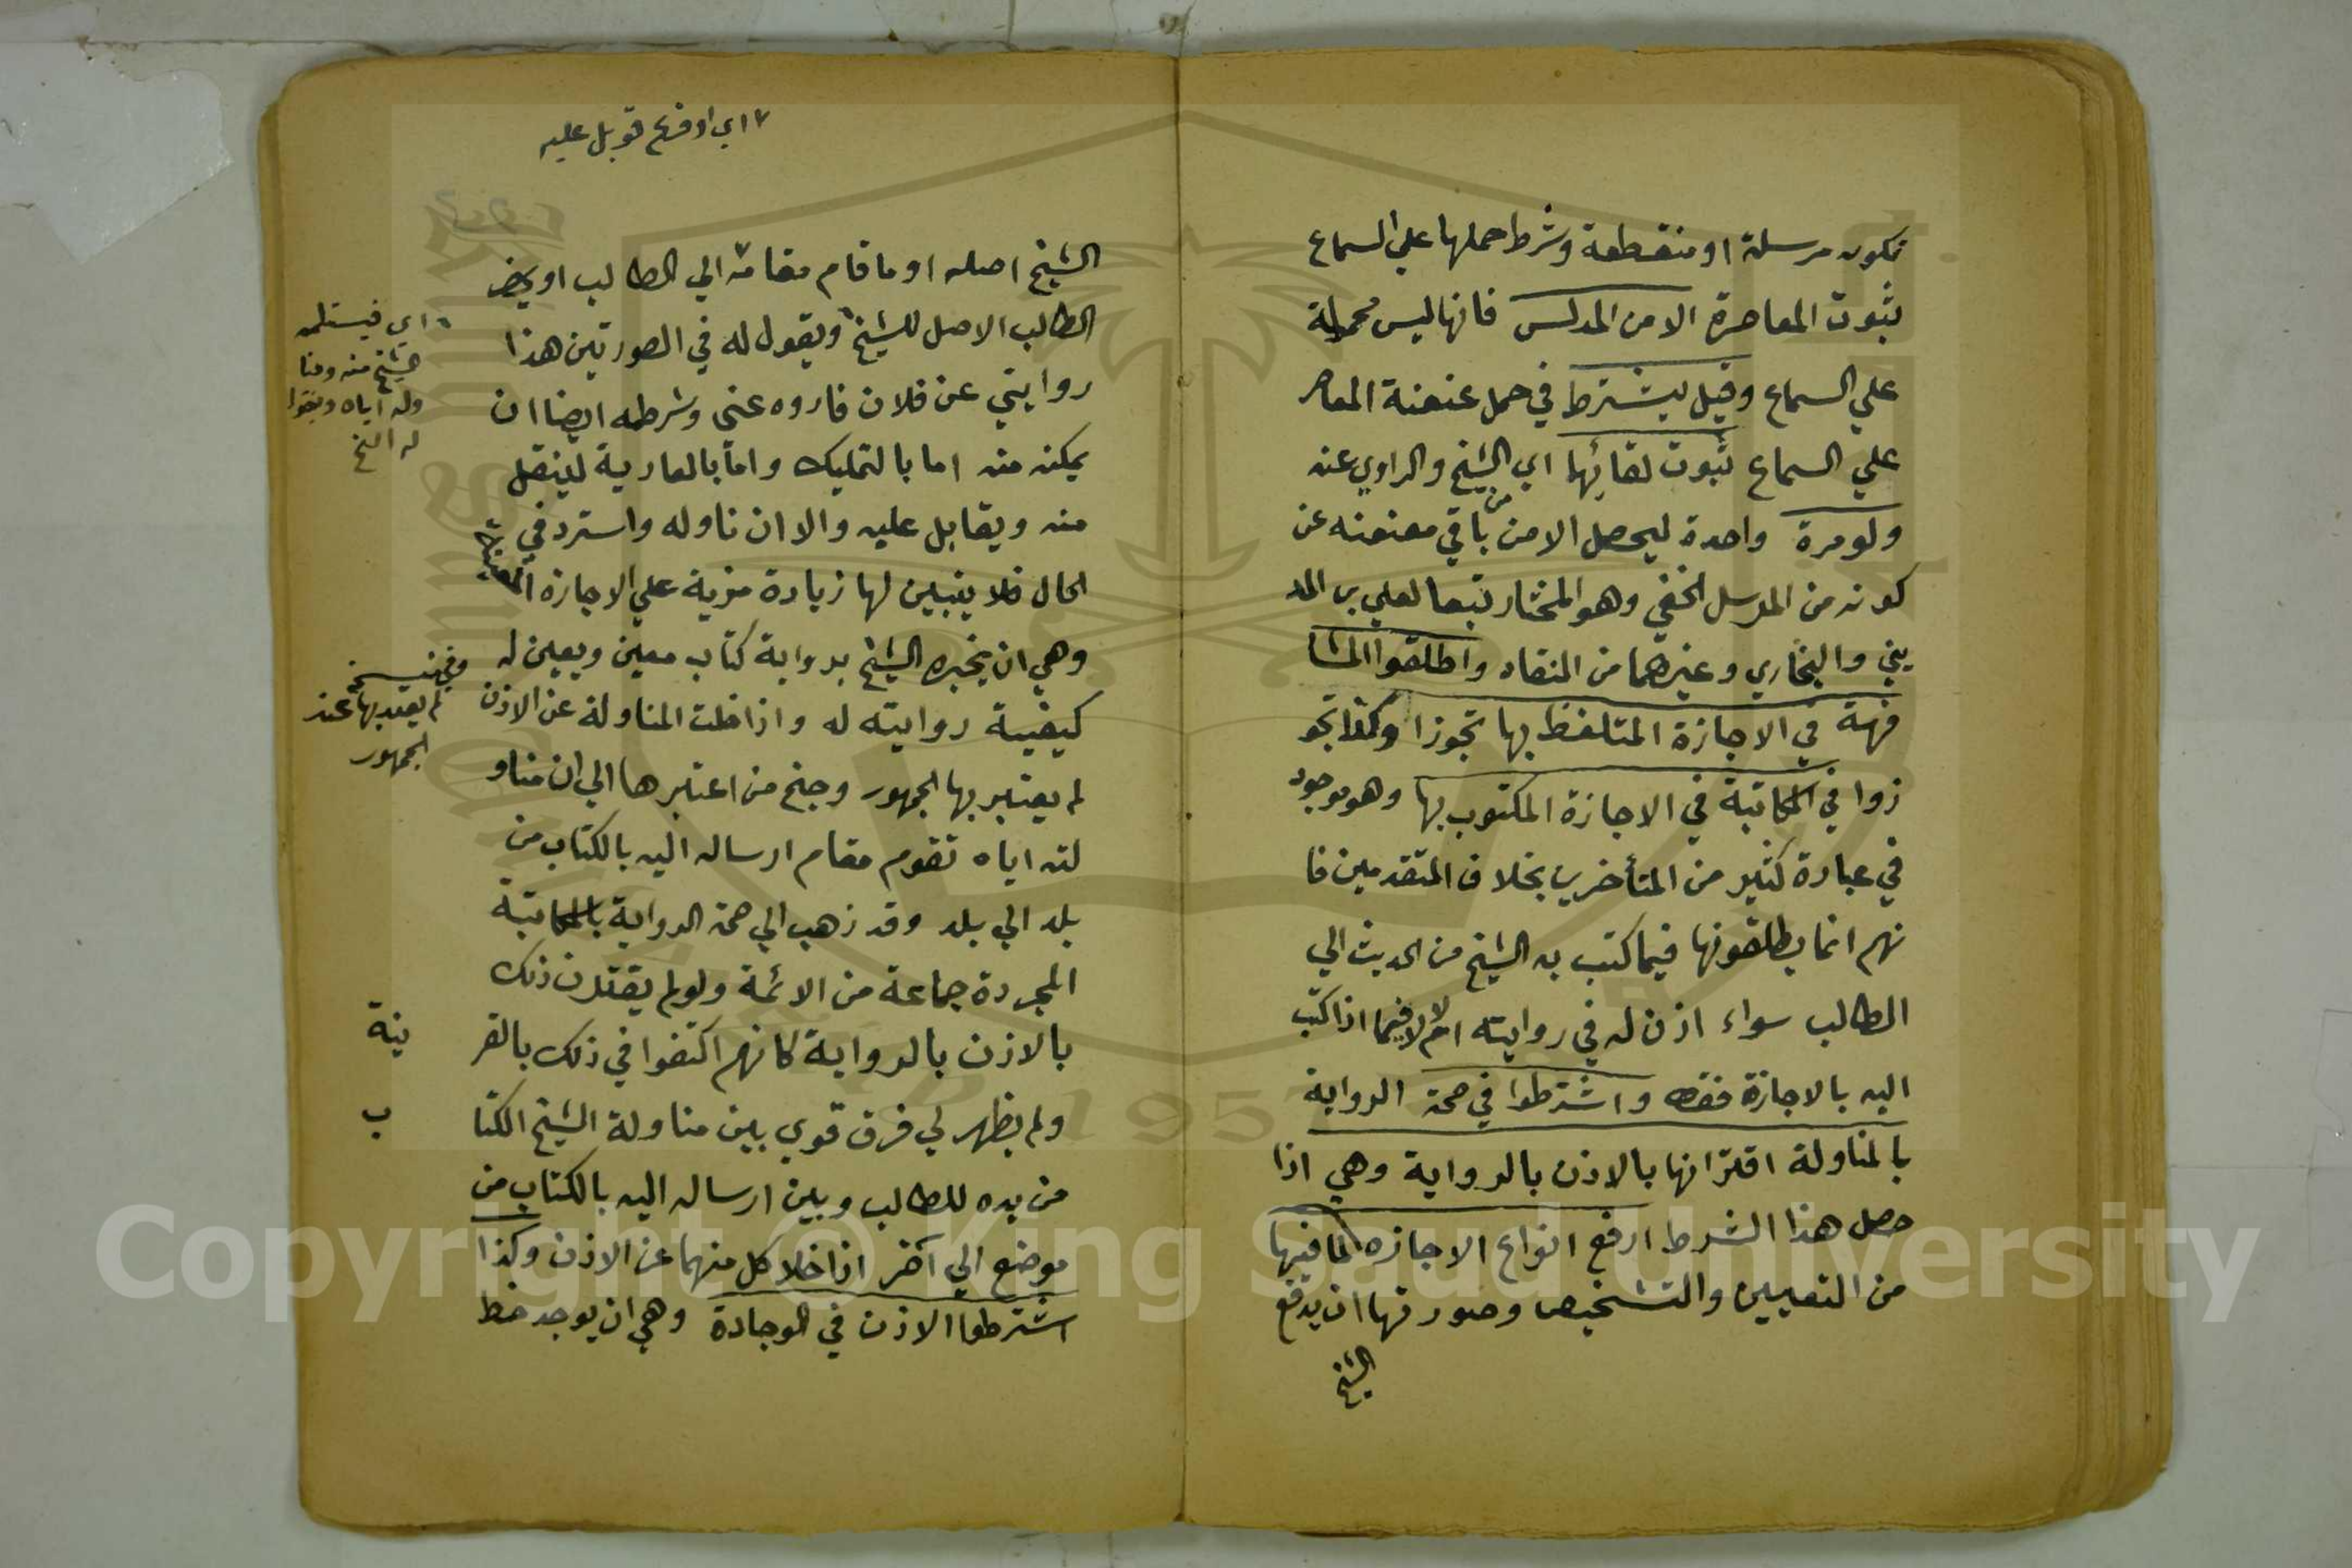 تكون مرسلة او منقطعة وشرط حملها علي السماع
ثبوت المعاصرة الا من المدلس فانها ليس محمولة
علي السماع وقيل يشترط في حمل عنعنة المعاصر
علي السماع ثبوت لقائهما اي الشيخ والراوي عنه
ولو مرة واحدة ليحصل الامن من باقي معنعنه عن
كونه من المرسل الخفي وهو المختار تبعا لعلي بن المد
يني والبخاري وغيرهما من النقاد واطلقوا المشا
فهة في الاجازة المتلفظ بها تجوزا وكذا تجو
زوا في المكاتبة في الاجازة المكتوب بها وهو موجود
في عبارة كثير من المتأخرين بخلاف المتقدمين فا
نهم انما يطلقونها فيما كتب به الشيخ من الحديث الي
الطالب سواء اذن له في روايته ام لا لا فيما اذا كتب
اليه بالاجازة فقط واشترطوا في صحة الرواية
بالمناولة اقترانها بالاذن بالرواية وهي اذا
حصل هذا الشرط ارفع انواع الاجازه لما فيها
من التعيين والتشخيص وصورتها ان يدفع
الشيخ
٧ اي او فرع قوبل عليه
الشيخ اصله او ما قام مقامه ٧ الي الطالب او يحضر
الطالب الاصل للشيخ ٦ ويقول له في الصورتين هذا
روايتي عن فلان فاروه عني وشرطه ايضا ان
يمكنه منه اما بالتمليك واما بالعارية لينقل
منه ويقابل عليه والا ان ناوله واسترد في
الحال فلا يتبين لها زيادة مزية علي الاجازة المعينة
وهي ان يخبره الشيخ برواية كتاب معين ويعين له
كيفية روايته له واذا خلت المناولة عن الاذن
لم يعتبر بها الجمهور وجنح من اعتبرها الي ان مناو
لته اياه تقوم مقام ارساله اليه بالكتاب من
بلد الي بلد وقد ذهب الي صحة الرواية بالمكاتبة
المجردة جماعة من الائمة ولو لم يقترن ذلك
بالاذن بالرواية كانهم اكتفوا في ذلك بالقر
ينة
ولم يظهر لي فرق قوي بين مناولة الشيخ الكتا
ب
من يده للطالب وبين ارساله اليه بالكتاب من
موضع الي آخر اذا خلا كل منهما عن الاذن وكذا
اشترطوا الاذن في الوجادة وهي ان يوجد خط
٦ اي فيستلمه
الشيخ منه ومنا
وله اياه ويقول
له الخ
وفي نسخة
لم يعتد بها عند
الجمهور
Copyright © King Saud University
1957